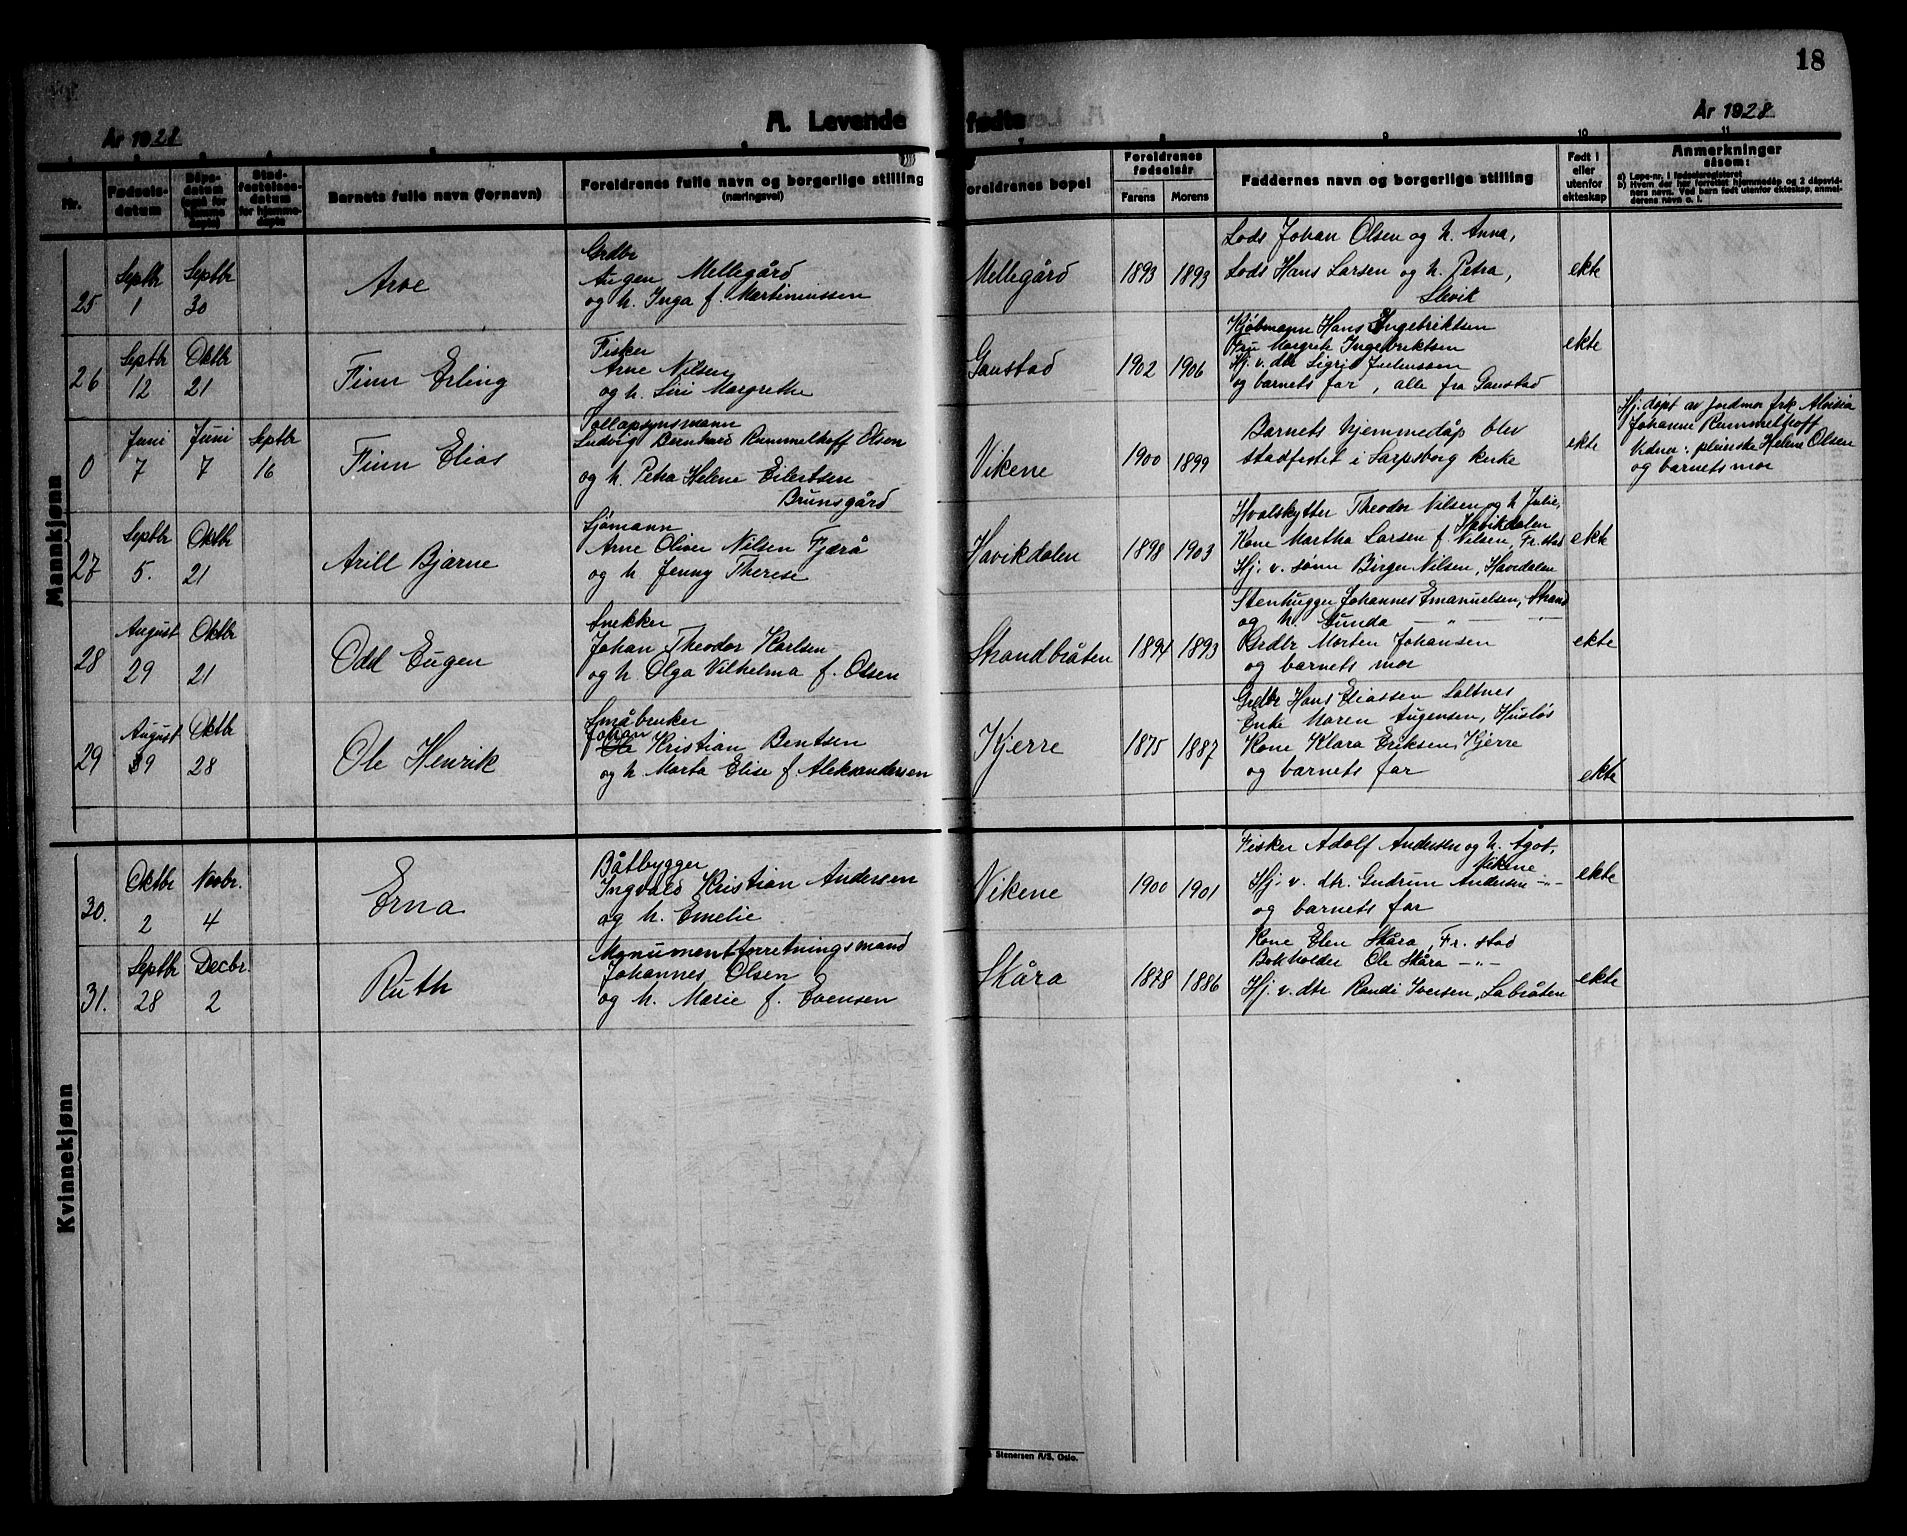 18
År 1928
A. Levende fødte
År 1928
Nr.
Fødselsdatum
Dåpsdatum
Stadfestelsesdatum for hjemmedøpte
Barnets fulle navn (fornavn)
Foreldrenes fulle navn og borgerlige stilling
(næringsvei)
Foreldrenes bopel
Foreldrenes fødselsår
Farens Morens
Faddernes navn og borgerlige stilling
Født i eller utenfor ekteskap
Anmerkninger
såsom:
a) Løpe-nr. i fødselsregisteret
b) Hvem der har forrettet hjemmedåp og 2 dåpsvidners navn. Ved barn født utenfor ekteskap, anmelderens navn o. l.
Mannkjønn
25
Septbr 1
Septbr 30
Arve
Grdbr
Augen Mellegård
og h. Inga f. Martinussen
Mellegård
1893 1893
Lods Johan Olsen og h. Anna,
Lods Hans Larsen og h. Petra,
Slevik
ekte
26
Septbr 12
Oktbr 21
Finn Erling
Fisker
Arne Nilsen
og h. Siri Margrethe
Gaustad
1902 1906
Kjøbmann Hans Ingebriktsen
Fru Margrit Ingebriktsen
Hj. v. dtr Sigrid Juliussen
og barnets far, alle fra Gaustad
ekte
0
Juni 7
Juni 7
Septbr 16
Finn Elias
Tollopsynsmann
Ludvig Bernhard Rummelhoff Olsen
og h. Petra Helene Eilertsen
Brunsgård
Vikene
1900 1899
Barnets hjemmedåp blev
stadfestet i Sarpsborg kirke
ekte
Hj. døpt av jordmor frk Aloisia
Johanne Rummelhoff
Vidner: pleierske Helene Olsen
og barnets mor
27
Septbr 5.
Oktbr 21
Arill Bjarne
Sjømann
Arne Oliver Nilsen Fjærå
og h Jenny Therese
Havikdalen
1898 1903
Hvalskytter Theodor Nilsen og h Julie,
Havikdalen
Kone Martha Larsen f. Nilsen, Fr.stad
Hj. v. sønn Birger Nilsen, Havidalen
ekte
28
August 29
Oktbr 21
Odd Eugen
Snekker
Johan Theodor Karlsen
og h Olga Vilhelma f. Olsen
Strandbråten
1894 1893
Stenhugger Johannes Emanuelsen, Strand
og h. Gunda — " — — " —
Grdbr Morten Johansen
og barnets mor
ekte
29
August 29
Oktbr 28
Ole Henrik
Småbruker
Johan
Ole Kristian Bentsen
og h Marta Elise f. Aleksandersen
Kjerre
1875 1887
Grdbr Hans Eliassen Saltnes
Enke Maren Augensen, Husløs
Kone Klara Eriksen, Kjerre
og barnets far
ekte
Kvinnekjønn
30.
Oktbr 2
Novbr. 4
Erna
Båtbygger
Ingvald Kristian Andersen
og h. Emelie
Vikene
1900 1901
Fisker Adolf Andersen og h. Ågot,
Vikene
Hj. v. dtr. Gudrun Andersen —"—
og barnets far
ekte
31.
Septbr 28
Decbr. 2
Ruth
Monumentforretningsmand
Johannes Olsen
og h. Marie f. Evensen
Skåra
1878 1886
Kone Elen Skåra, Fr. stad
Bokholder Ole Skåra —"—
Hj. v. dtr Randi Iversen, Labråten
ekte
Stenersen A/S, Oslo.